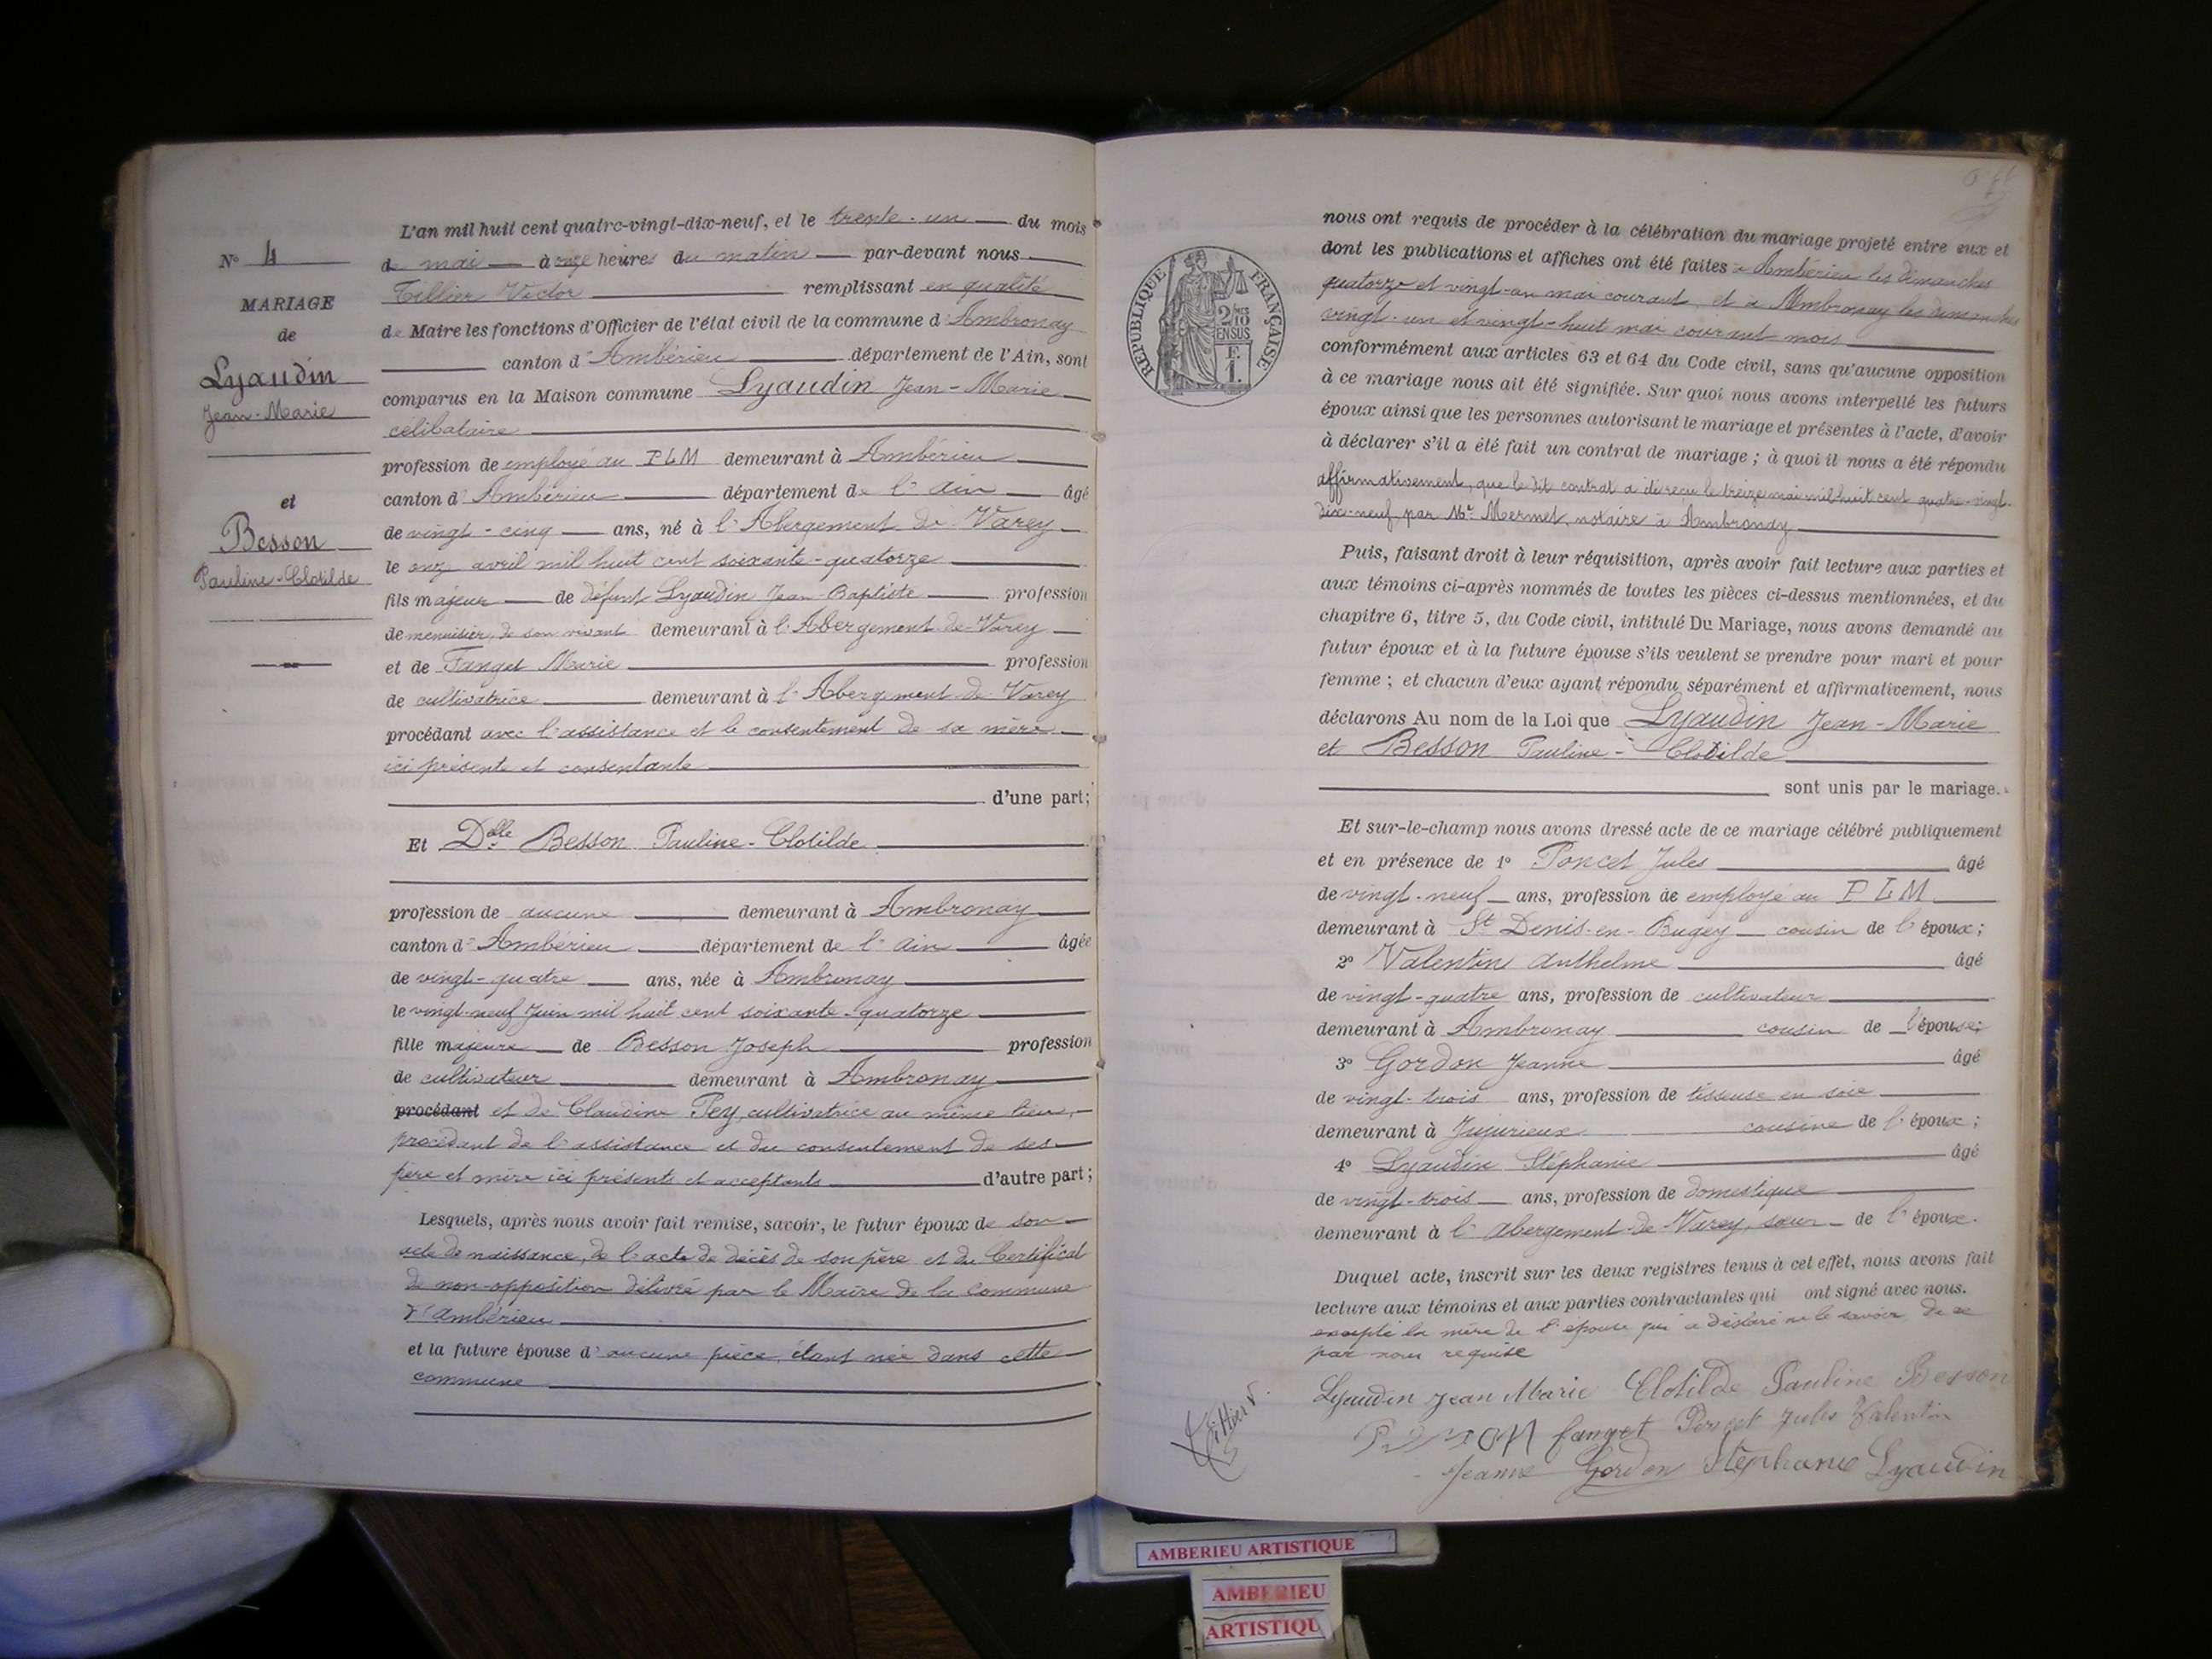 N° 4
MARIAGE
de
Lyaudin
Jean-Marie
et
Besson
Pauline-Clotilde
L'an mil huit cent quatre-vingt-dix-neuf, et le trente-un du mois
de mai à onze heures du matin par-devant nous
Tillier Victor remplissant en qualité
de Maire les fonctions d'Officier de l'état civil de la commune d'Ambronay
canton d'Ambérieu département de l'Ain, sont
comparus en la Maison commune Lyaudin Jean-Marie
célibataire
profession de employé au PLM demeurant à Ambérieu
canton d'Ambérieu département de l'Ain âgé
de vingt-cinq ans, né à l'Abergement de Varey
le onze avril mil huit cent soixante-quatorze
fils majeur de défunt Lyaudin Jean-Baptiste profession
de menuisier, de son vivant demeurant à l'Abergement-de-Varey
et de Fanget Marie profession
de cultivatrice demeurant à l'Abergement-de-Varey
procédant avec l'assistance et le consentement de sa mère
ici présente et consentante
d'une part;
Et Delle Besson Pauline-Clotilde
profession de aucune demeurant à Ambronay
canton d'Ambérieu département de l'Ain âgée
de vingt-quatre ans, née à Ambronay
le vingt-neuf Juin mil huit cent soixante-quatorze
fille majeure de Besson Joseph profession
de cultivateur demeurant à Ambronay
procédant et de Claudine Pey, cultivatrice au même lieu,
procédant de l'assistance et du consentement de ses
père et mère ici présents et acceptants d'autre part;
Lesquels, après nous avoir fait remise, savoir, le futur époux de son
acte de naissance, de l'acte de décès de son père et du Certificat
de non-opposition délivré par le Maire de la Commune
d'Ambérieu
et la future épouse d'aucune pièce, étant née dans cette
commune
RÉPUBLIQUE FRANÇAISE
2/10
EN SUS
F.
1.
nous ont requis de procéder à la célébration du mariage projeté entre eux et
dont les publications et affiches ont été faites à Ambérieu les dimanches
quatorze et vingt-un mai courant, et à Ambronay les dimanches
vingt-un et vingt-huit mai courant mois
conformément aux articles 63 et 64 du Code civil, sans qu'aucune opposition
à ce mariage nous ait été signifiée. Sur quoi nous avons interpellé les futurs
époux ainsi que les personnes autorisant le mariage et présentes à l'acte, d'avoir
à déclarer s'il a été fait un contrat de mariage; à quoi il nous a été répondu
affirmativement, que le dit contrat a été reçu le treize mai mil huit cent quatre-vingt-
dix-neuf par Me Mermet, notaire à Ambronay
Puis, faisant droit à leur réquisition, après avoir fait lecture aux parties et
aux témoins ci-après nommés de toutes les pièces ci-dessus mentionnées, et du
chapitre 6, titre 5, du Code civil, intitulé Du Mariage, nous avons demandé au
futur époux et à la future épouse s'ils veulent se prendre pour mari et pour
femme; et chacun d'eux ayant répondu séparément et affirmativement, nous
déclarons Au nom de la Loi que Lyaudin Jean-Marie
et Besson Pauline-Clotilde
sont unis par le mariage.
Et sur-le-champ nous avons dressé acte de ce mariage célébré publiquement
et en présence de 1° Poncet Jules âgé
de vingt-neuf ans, profession de employé au PLM
demeurant à St Denis-en-Bugey cousin de l'époux;
2° Valentin Anthelme âgé
de vingt-quatre ans, profession de cultivateur
demeurant à Ambronay cousin de l'épouse;
3° Gordon Jeanne âgé
de vingt-trois ans, profession de tisseuse en soie
demeurant à Jujurieux cousine de l'époux;
4° Lyaudin Stéphanie âgé
de vingt-trois ans, profession de domestique
demeurant à l'Abergement-de-Varey, sœur de l'époux.
Duquel acte, inscrit sur les deux registres tenus à cet effet, nous avons fait
lecture aux témoins et aux parties contractantes qui ont signé avec nous.
excepté la mère de l'épouse qui a déclaré ne le savoir, de ce
par nous requise
Lyaudin Jean Marie Clotilde Pauline Besson
fanget Poncet Jules Valentin
Jeanne Gordon Stéphanie Lyaudin
AMBERIEU ARTISTIQUE
AMBERIEU
ARTISTIQU